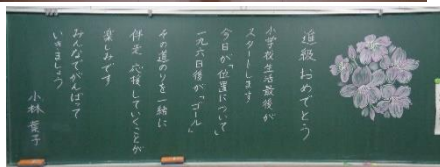 進級 おめでとう
小学校生活最後が
スタートします
今日が「位置について」
一九六日後が「ゴール」
その道のりを一緒に
伴走 応援していくことが
楽しみです
みんなでがんばって
いきましょう
小林 葉子